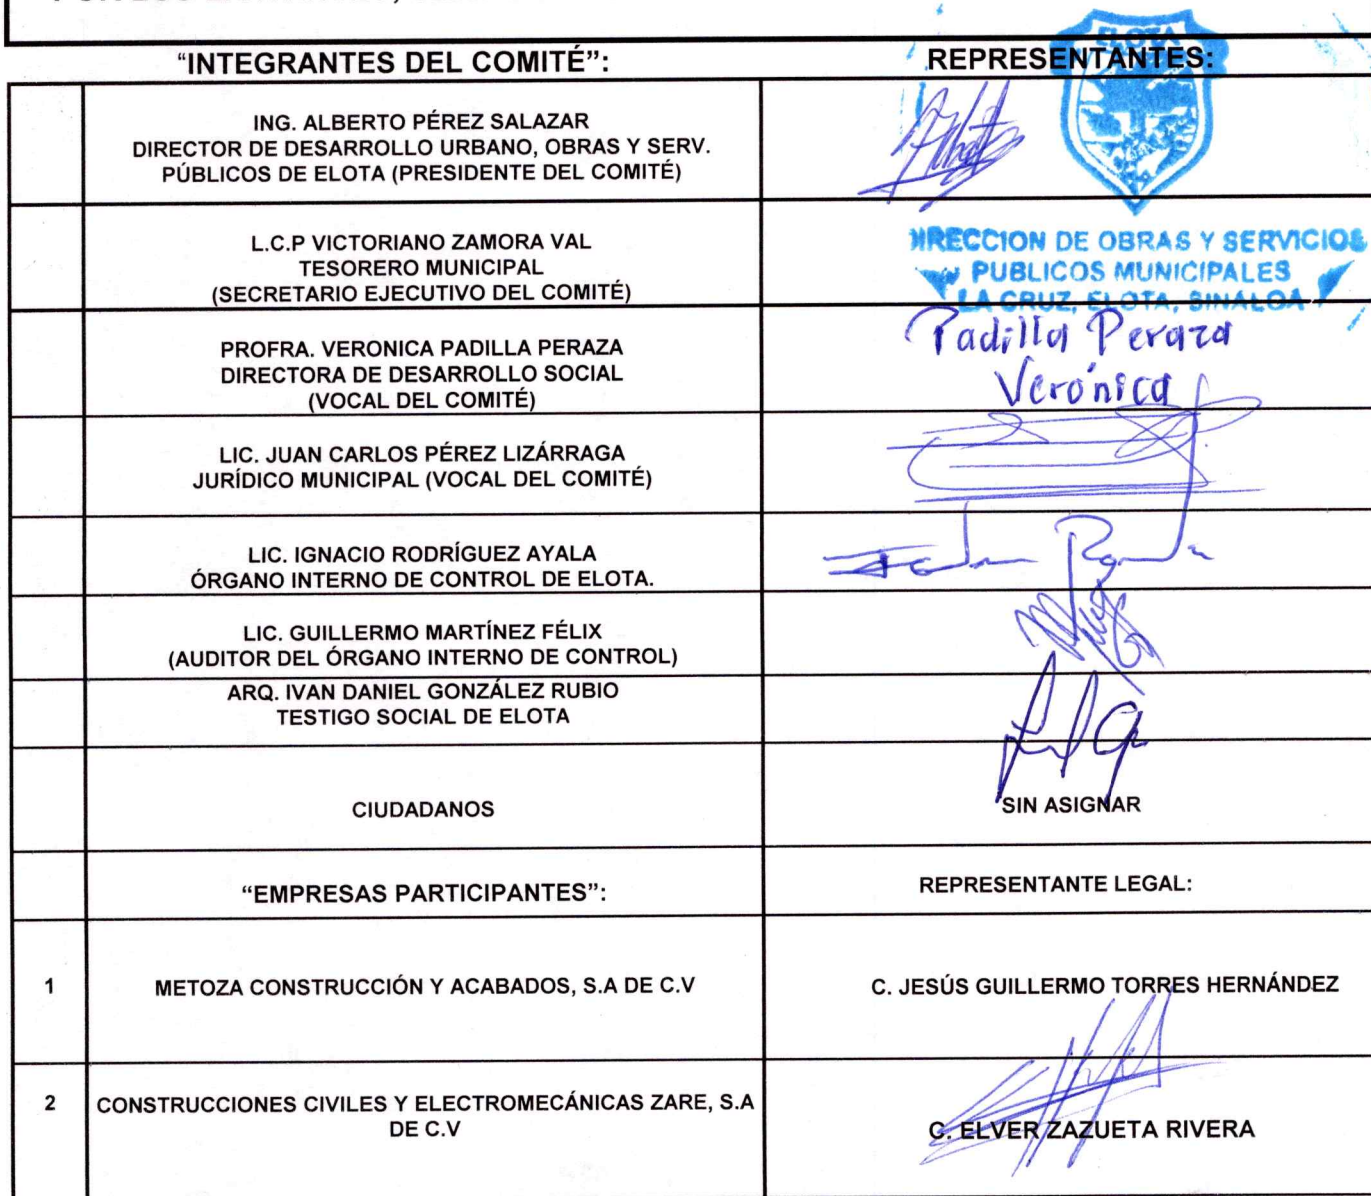 "INTEGRANTES DEL COMITÉ":
REPRESENTANTES:
ELOTA
ING. ALBERTO PÉREZ SALAZAR
DIRECTOR DE DESARROLLO URBANO, OBRAS Y SERV.
PÚBLICOS DE ELOTA (PRESIDENTE DEL COMITÉ)
L.C.P VICTORIANO ZAMORA VAL
TESORERO MUNICIPAL
(SECRETARIO EJECUTIVO DEL COMITÉ)
DIRECCION DE OBRAS Y SERVICIOS
PUBLICOS MUNICIPALES
LA CRUZ, ELOTA, SINALOA
PROFRA. VERONICA PADILLA PERAZA
DIRECTORA DE DESARROLLO SOCIAL
(VOCAL DEL COMITÉ)
Padilla Peraza
Verónica
LIC. JUAN CARLOS PÉREZ LIZÁRRAGA
JURÍDICO MUNICIPAL (VOCAL DEL COMITÉ)
LIC. IGNACIO RODRÍGUEZ AYALA
ÓRGANO INTERNO DE CONTROL DE ELOTA.
LIC. GUILLERMO MARTÍNEZ FÉLIX
(AUDITOR DEL ÓRGANO INTERNO DE CONTROL)
ARQ. IVAN DANIEL GONZÁLEZ RUBIO
TESTIGO SOCIAL DE ELOTA
CIUDADANOS
SIN ASIGNAR
"EMPRESAS PARTICIPANTES":
REPRESENTANTE LEGAL:
1
METOZA CONSTRUCCIÓN Y ACABADOS, S.A DE C.V
C. JESÚS GUILLERMO TORRES HERNÁNDEZ
2
CONSTRUCCIONES CIVILES Y ELECTROMECÁNICAS ZARE, S.A
DE C.V
C. ELVER ZAZUETA RIVERA